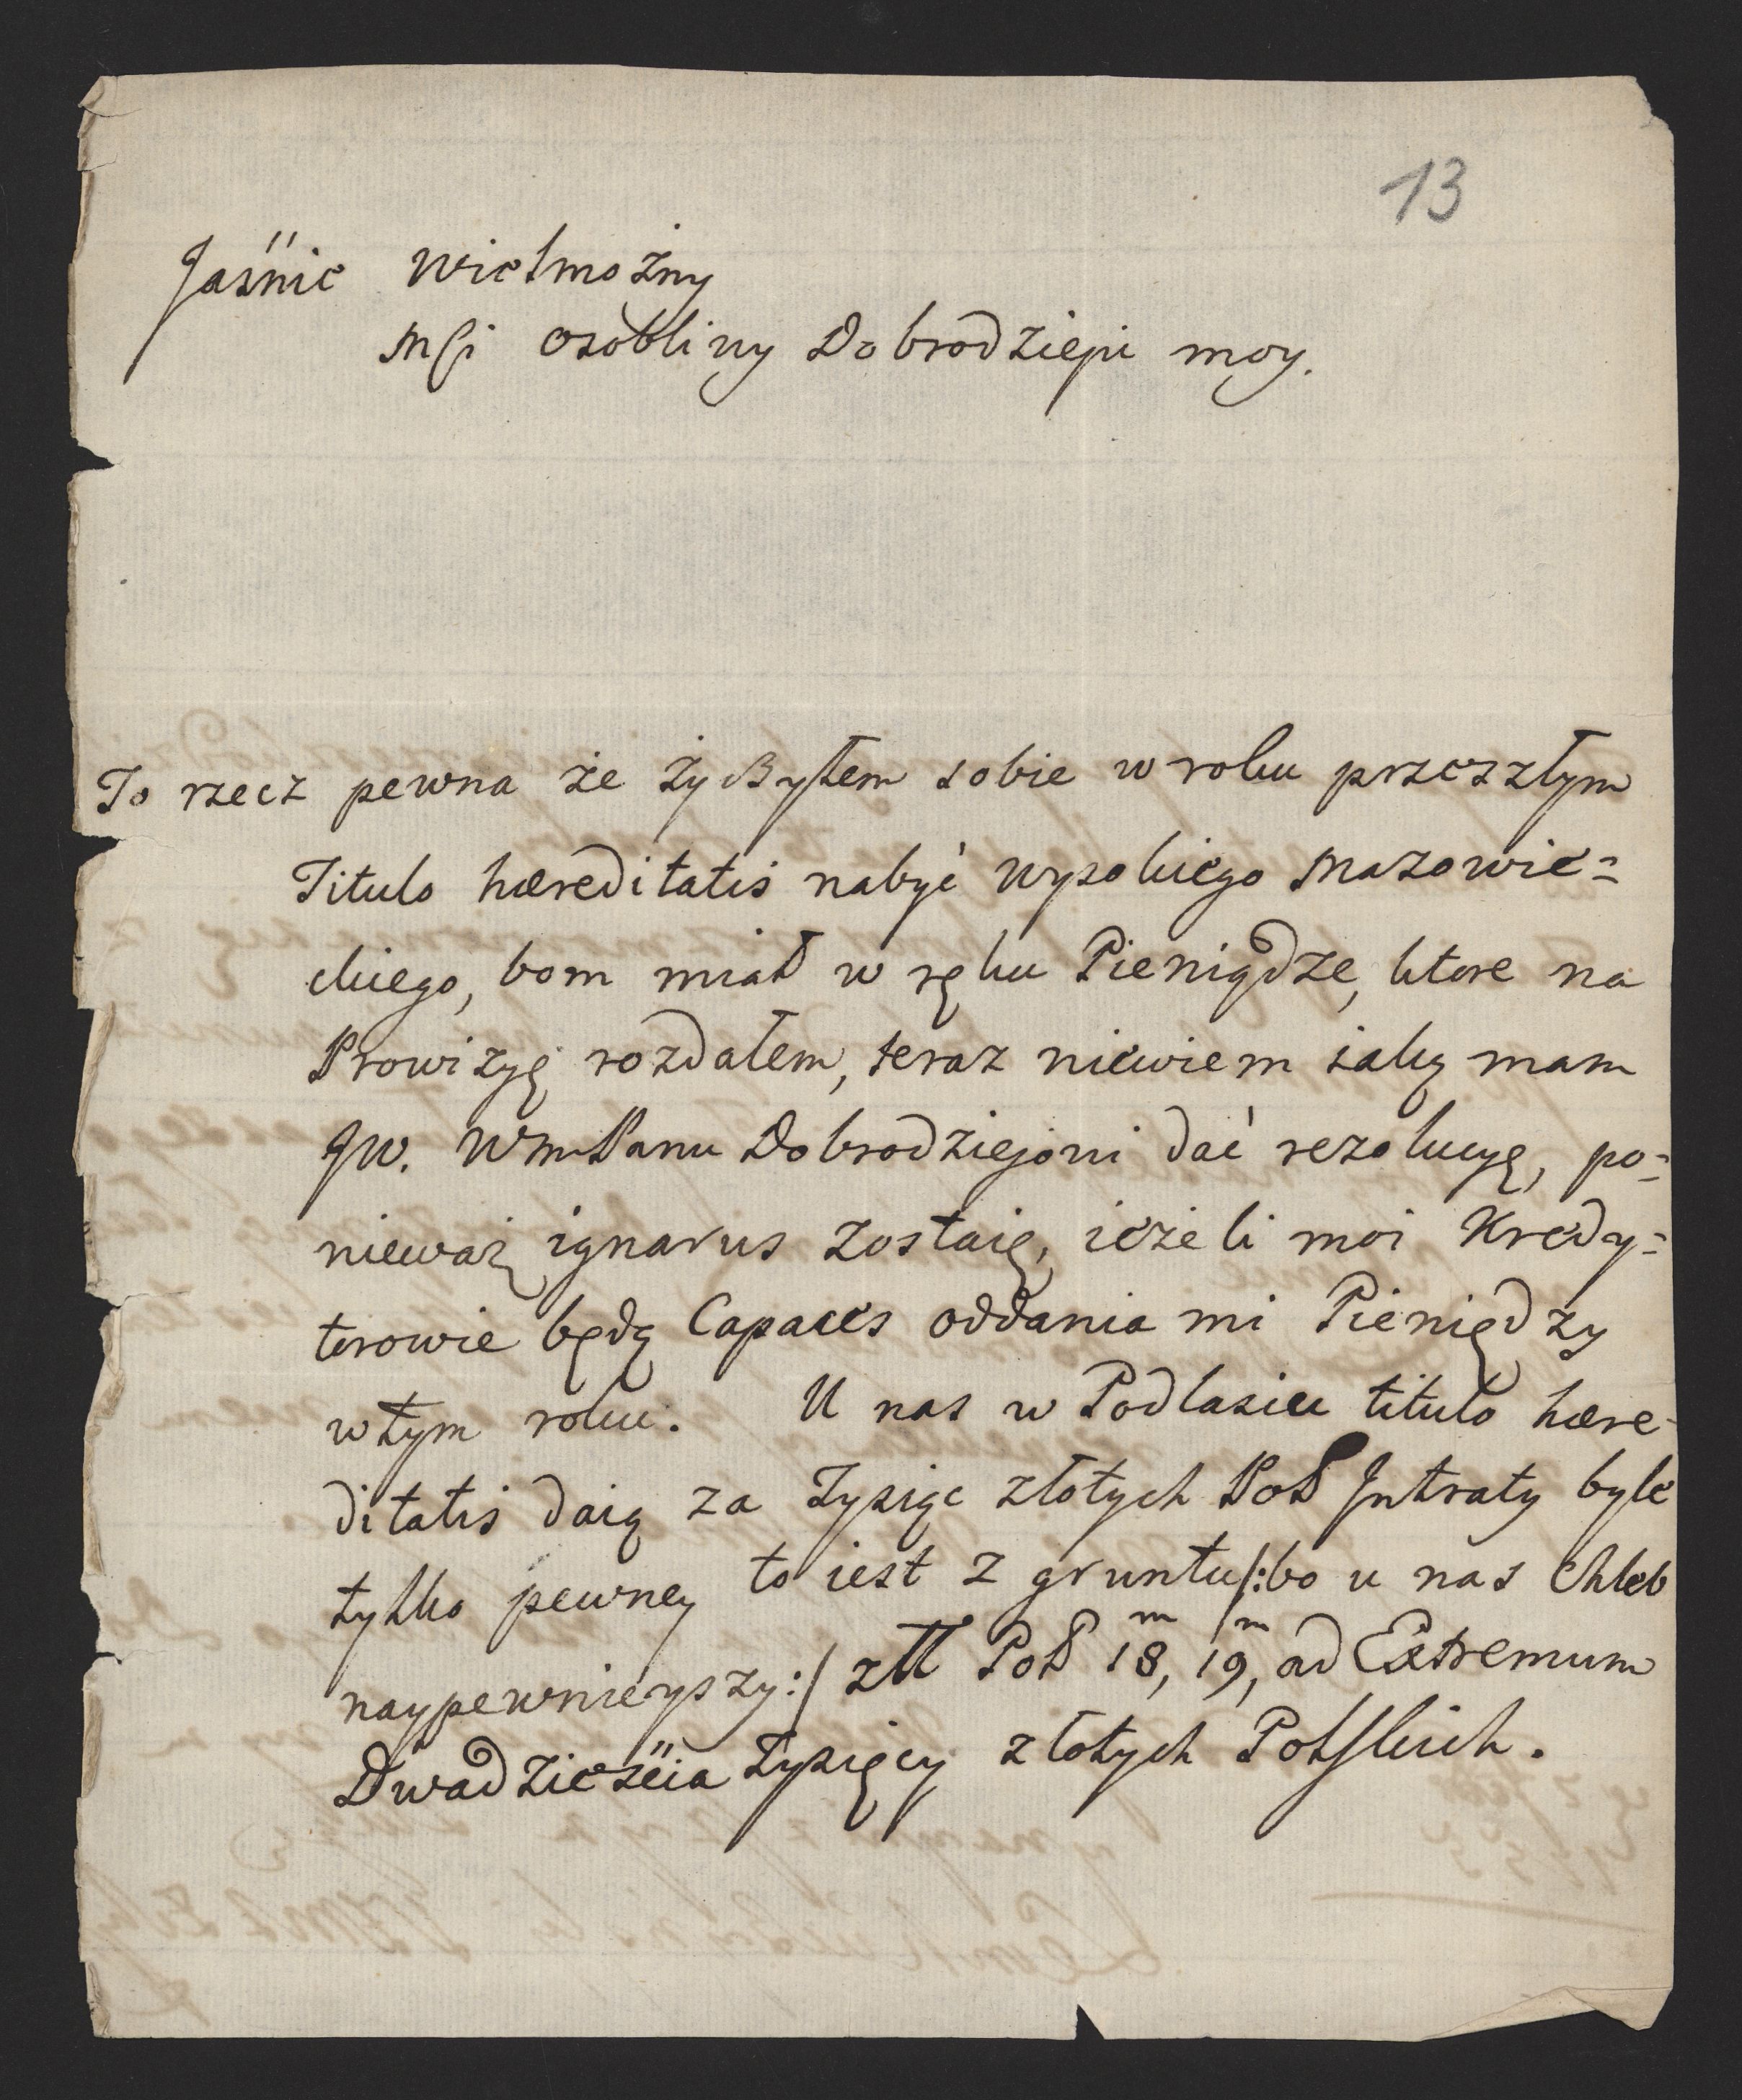 13
Jaśnie Wielmożny
Mſi osobliwy Dobrodzieju moy.
To rzecz pewna że życzyłem sobie w roku przeszłym
Titulo hæreditatis nabyć Wysokiego Mazowie=
ckiego, bom miał w ręku Pieniądze, ktore na
Prowizyę rozdałem, teraz niewiem iaką mam
JW. WmPanu Dobrodziejowi dać rezolucyę, po=
nieważ ignarus zostaię, ieżeli moi Kredy=
torowie będą Capaces oddania mi Pieniędzy
w tym roku. U nas w Podlasiu titulo hære-
ditatis daią za Tysiąc złotych Pol Jntraty byle
tylko pewney to iest z gruntu /:bo u nas Chleb
naypewnieyszy:/ złł Pol 18/m, 19/m, ad Extremum
Dwadzieścia Tysięcy złotych Polſkich.